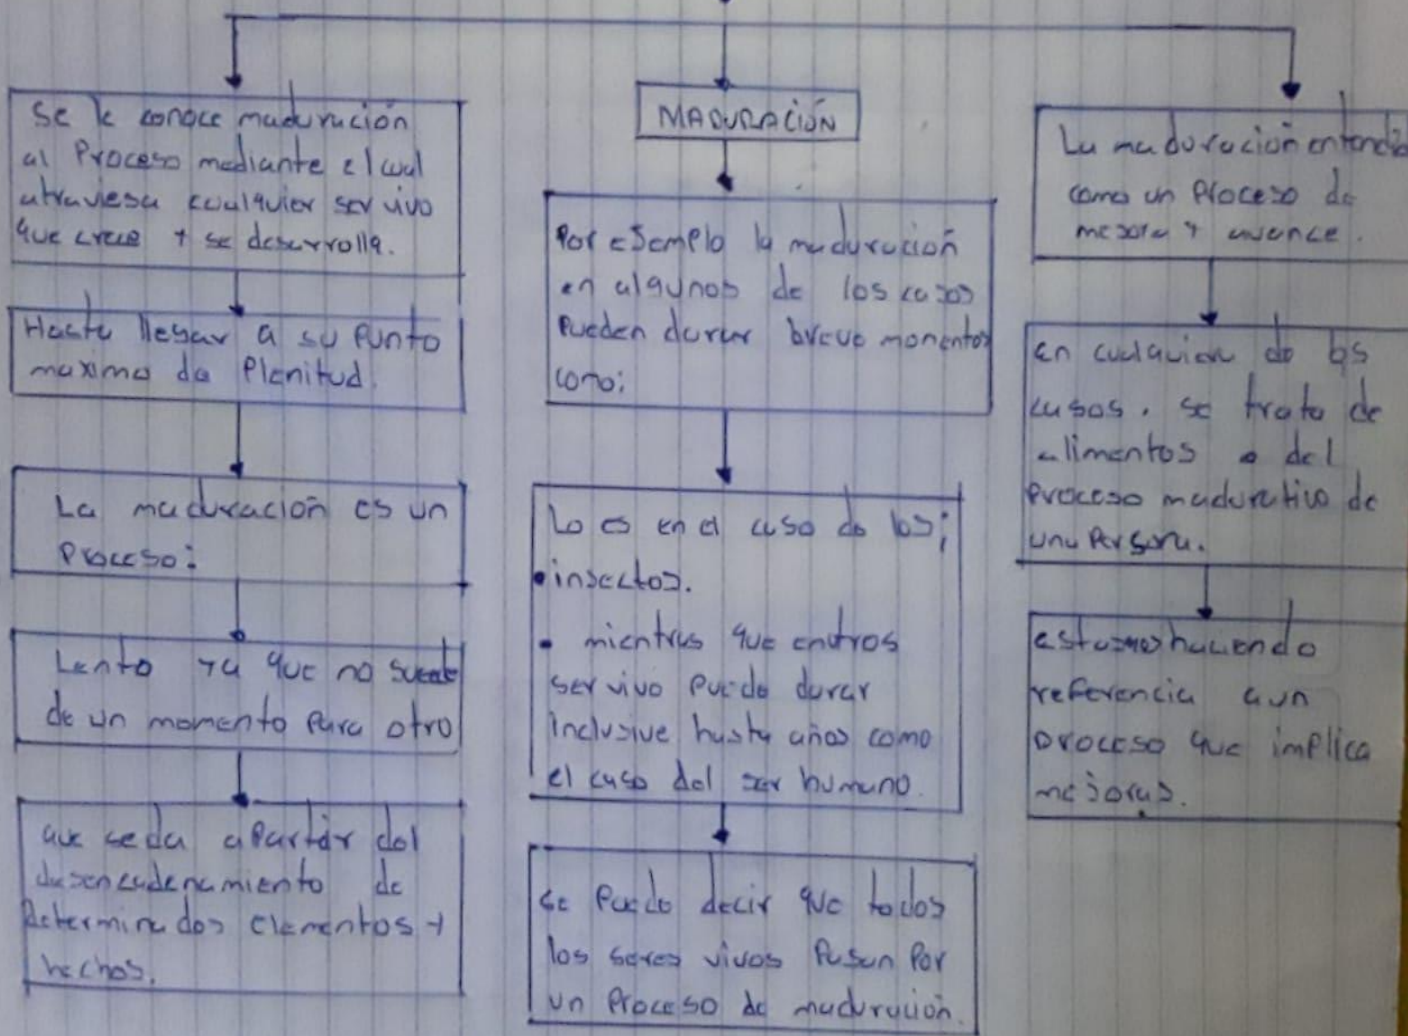 Se le conoce maduración
al Proceso mediante el cual
atraviesa cualquier ser vivo
que crece y se desarrolla.
Hasta llegar a su Punto
maximo de Plenitud.
La maduración es un
Proceso:
Lento ya que no sucede
de un momento Para otro
que se da aPartir del
desencadenamiento de
determinados elementos y
hechos.
MADURACIÓN
Por eJemplo la maduración
en algunos de los casos
Pueden durar breve momentos
como:
Lo es en el caso de los;
• insectos.
• mientras que enotros
ser vivo Puede durar
inclusive hasta años como
el caso del ser humano.
Se Puede decir que todos
los seres vivos Pasan Por
un Proceso de maduración.
La maduración entendida
como un Proceso de
mejora y avance.
En cualquier de los
casos. se trate de
alimentos o del
Proceso madurativo de
una Persona.
estamos haciendo
referencia aun
proceso que implica
meJoras.